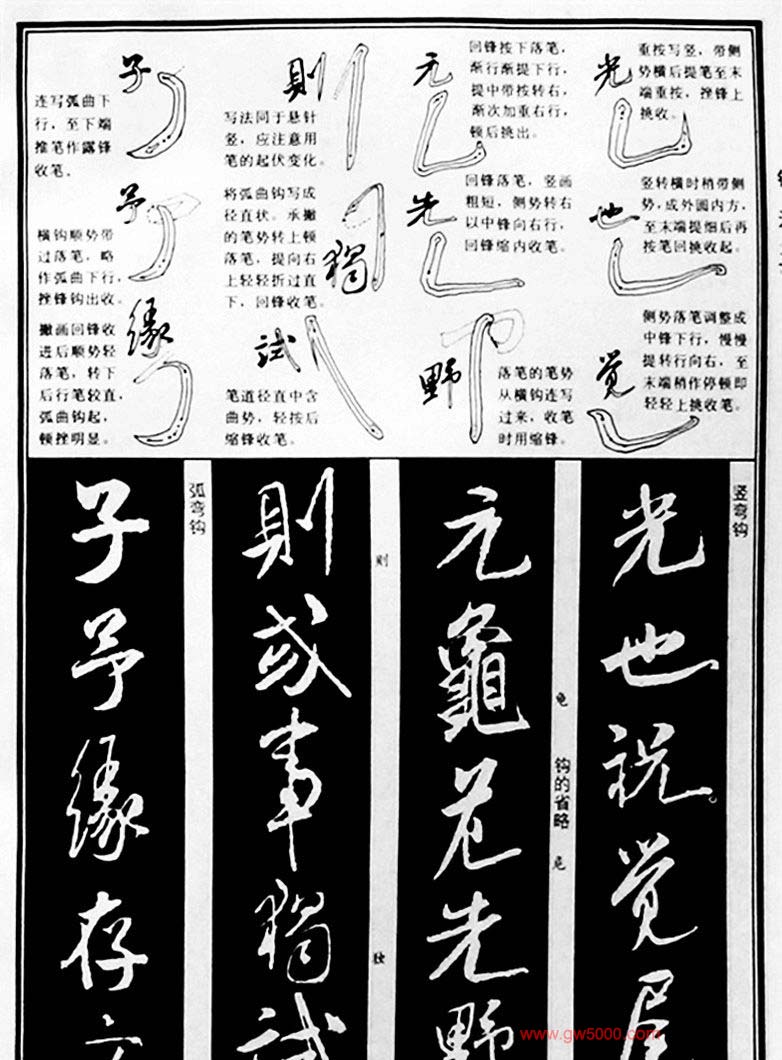 光
重按写竖,带侧
势横后提笔至末
端重按,挫锋上
挑收。
也
竖转横时梢带侧
势,成外圆内方,
至末端提细后再
按笔回挑收起。
觉
侧势落笔调整成
中锋下行,慢慢
提转行向右,至
末端梢作停顿即
轻轻上挑收笔。
元
回锋按下落笔,
渐行渐提下行,
提中带按转右,
渐次加重右行,
顿后挑出。
先
回锋落笔,竖画
粗短,侧势转右
以中锋向右行,
回锋缩内收笔。
野
落笔的笔势
从横钩连写
过来,收笔
时用缩锋。
則
写法同于悬针
竖,应注意用
笔的起伏变化。
獨
将弧曲钩写成
径直状。承撇
的笔势转上顿
落笔,提向右
上轻轻折过直
下,回锋收笔。
試
笔道径直中含
曲势,轻按后
缩锋收笔。
子
连写弧曲下
行,至下端
推笔作露锋
收笔。
予
横钩顺势带
过落笔,略
作弧曲下行,
挫锋钩出收。
缘
撇画回锋收
进后顺势轻
落笔,转下
后行笔较直,
弧曲钩起,
顿挫明显。
竖弯钩
光也祝觉
钩的省略
元龜花先野
则
独
則或事獨試
弧弯钩
子予缘存
www.gw5000.com